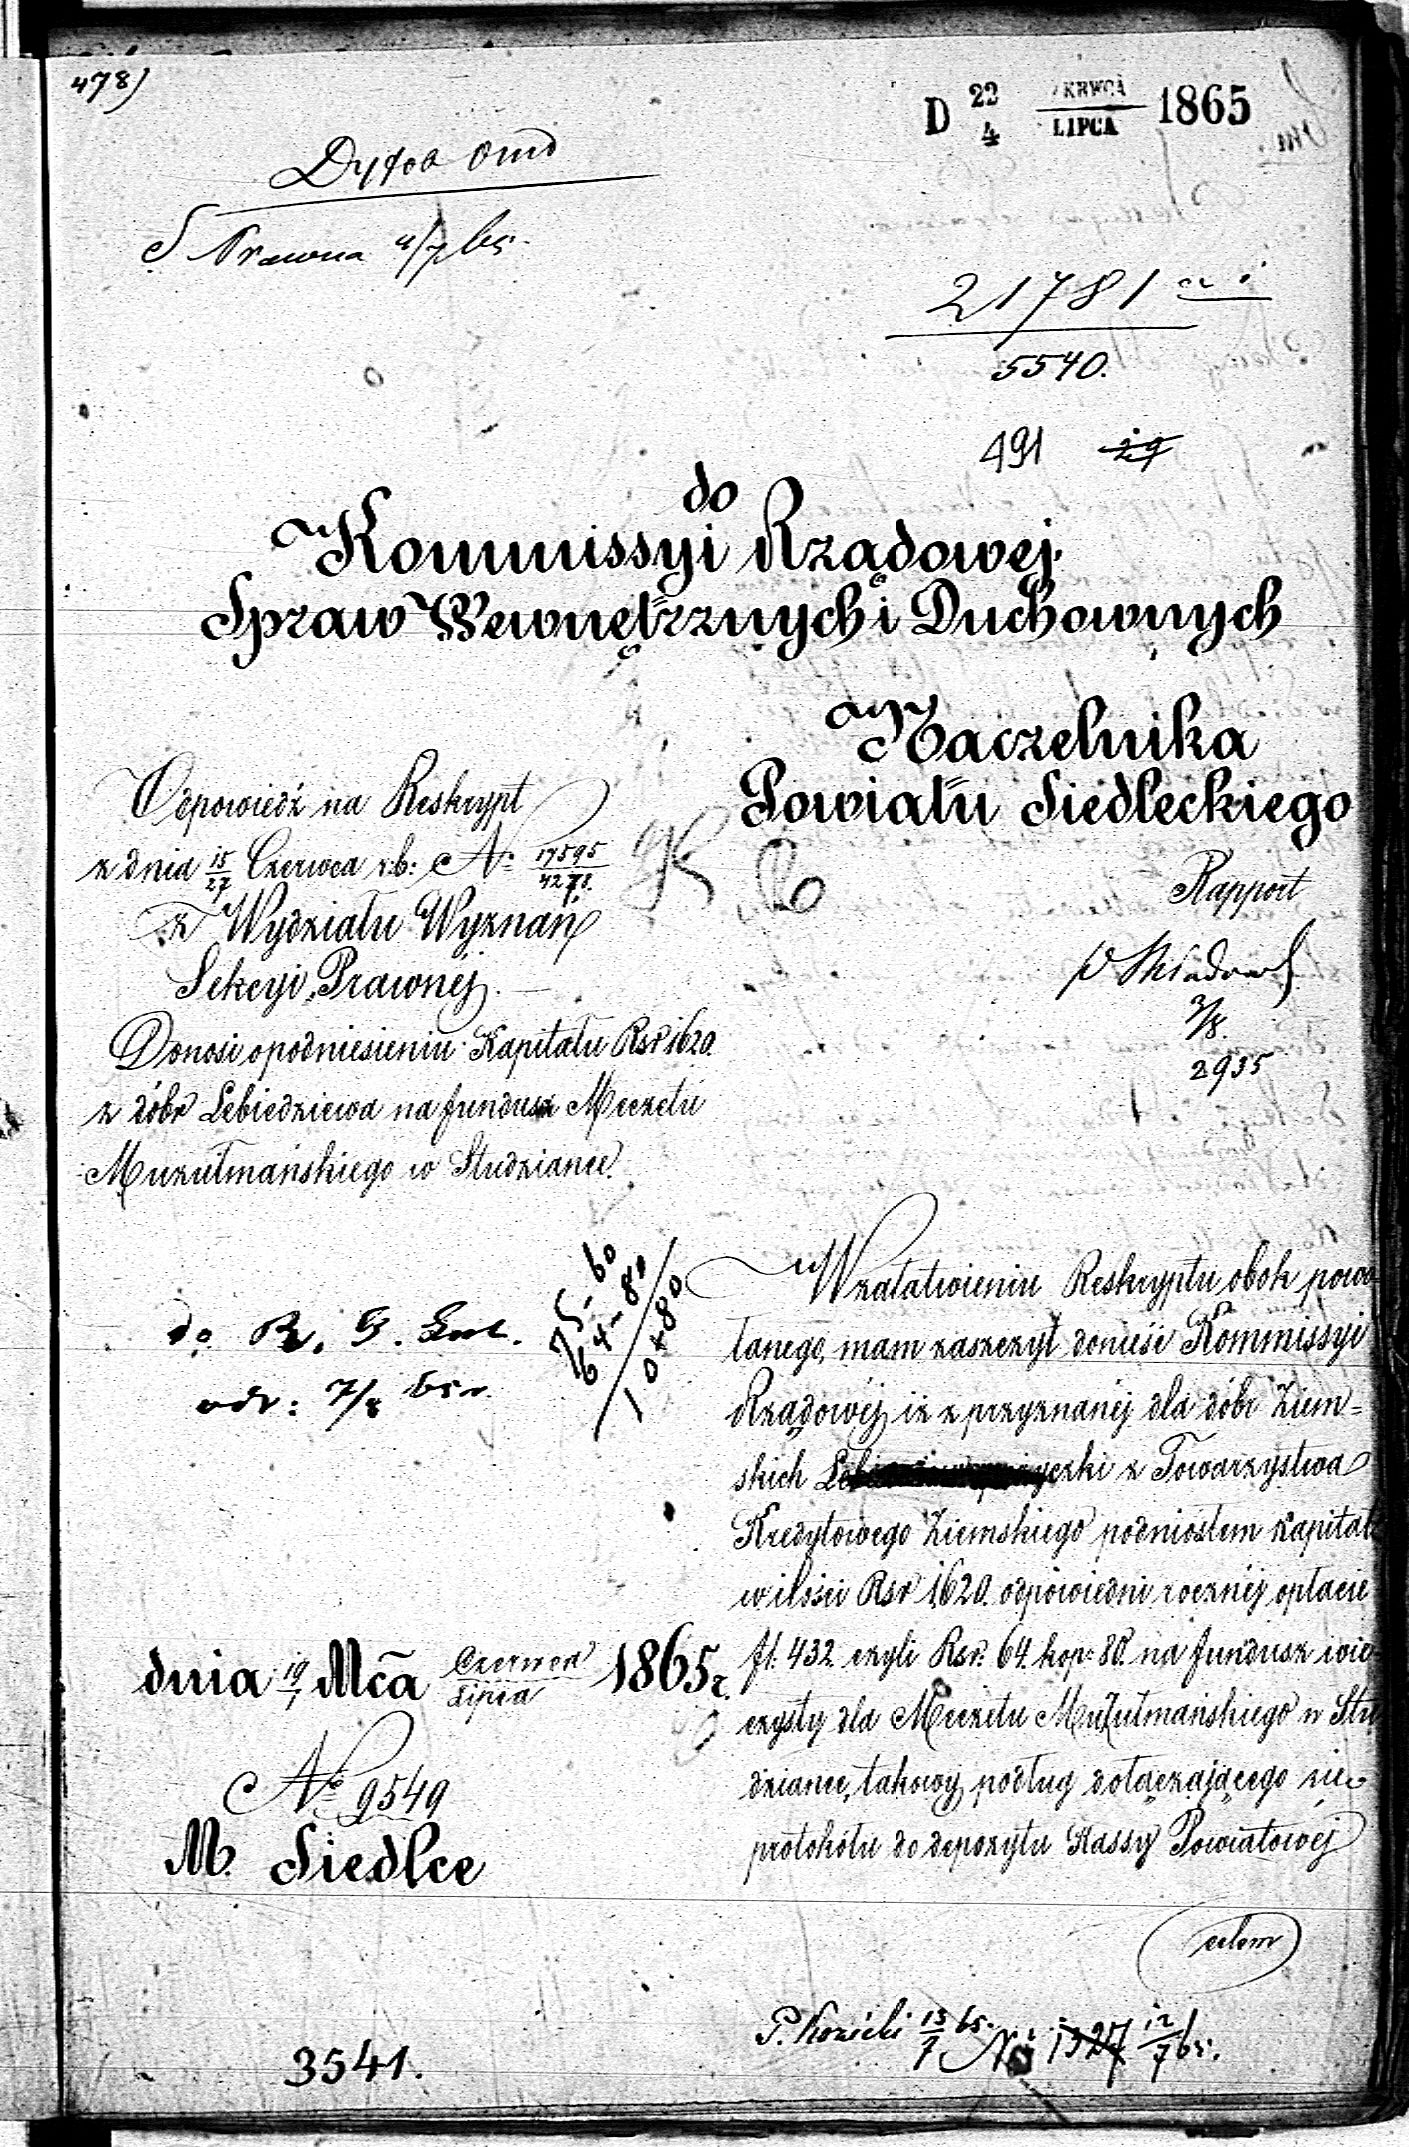 478)
D 22/4 CZERWCA/LIPCA 1865
S Prawna 4/7 65.
21781
5540.
491 29
do
Kommissyi Rządowej
Spraw Wewnętrznych i Duchownych
Naczelnika
Powiatu Siedleckiego
Rapport
3/8.
2935
Odpowiedź na Reskrypt
z dnia 15/27 Czerwca r.b: No 17595/4278.
z Wydziału Wyznań
Sekcyi Prawnéj.
Donosi o podniesieniu Kapitału Rsr 1620.
z dóbr Lebiedziewa na fundusz Meczetu
Muzułmańskiego w Studziance.
do
odr: 7/8 65 r.
75-60
64-80
10+80
W załatwieniu Reskryptu obok powo
łanego, mam zaszczyt donieść Kommissyi
Rządowéj iż z przyznanéj dla dóbr Ziem=
skich pożyczki z Towarzystwa
Kredytowego Ziemskiego podniosłem kapitał
w ilości Rsr 1620. odpowiedni rocznéj opłacie
fl. 432 czyli Rsr. 64. kop: 80. na fundusz wie
czysty dla Meczetu Muzułmańskiego w Stu
dziance, takowy podług dołączającego się
protokółu do depozytu Kassy Powiatowéj
celem
dnia 19/1 Mca Czerwca/Lipca 1865 r.
No 9549
M. Siedlce
P. Kozicki 13/7 65. No 1327 12/7 65.
3541.